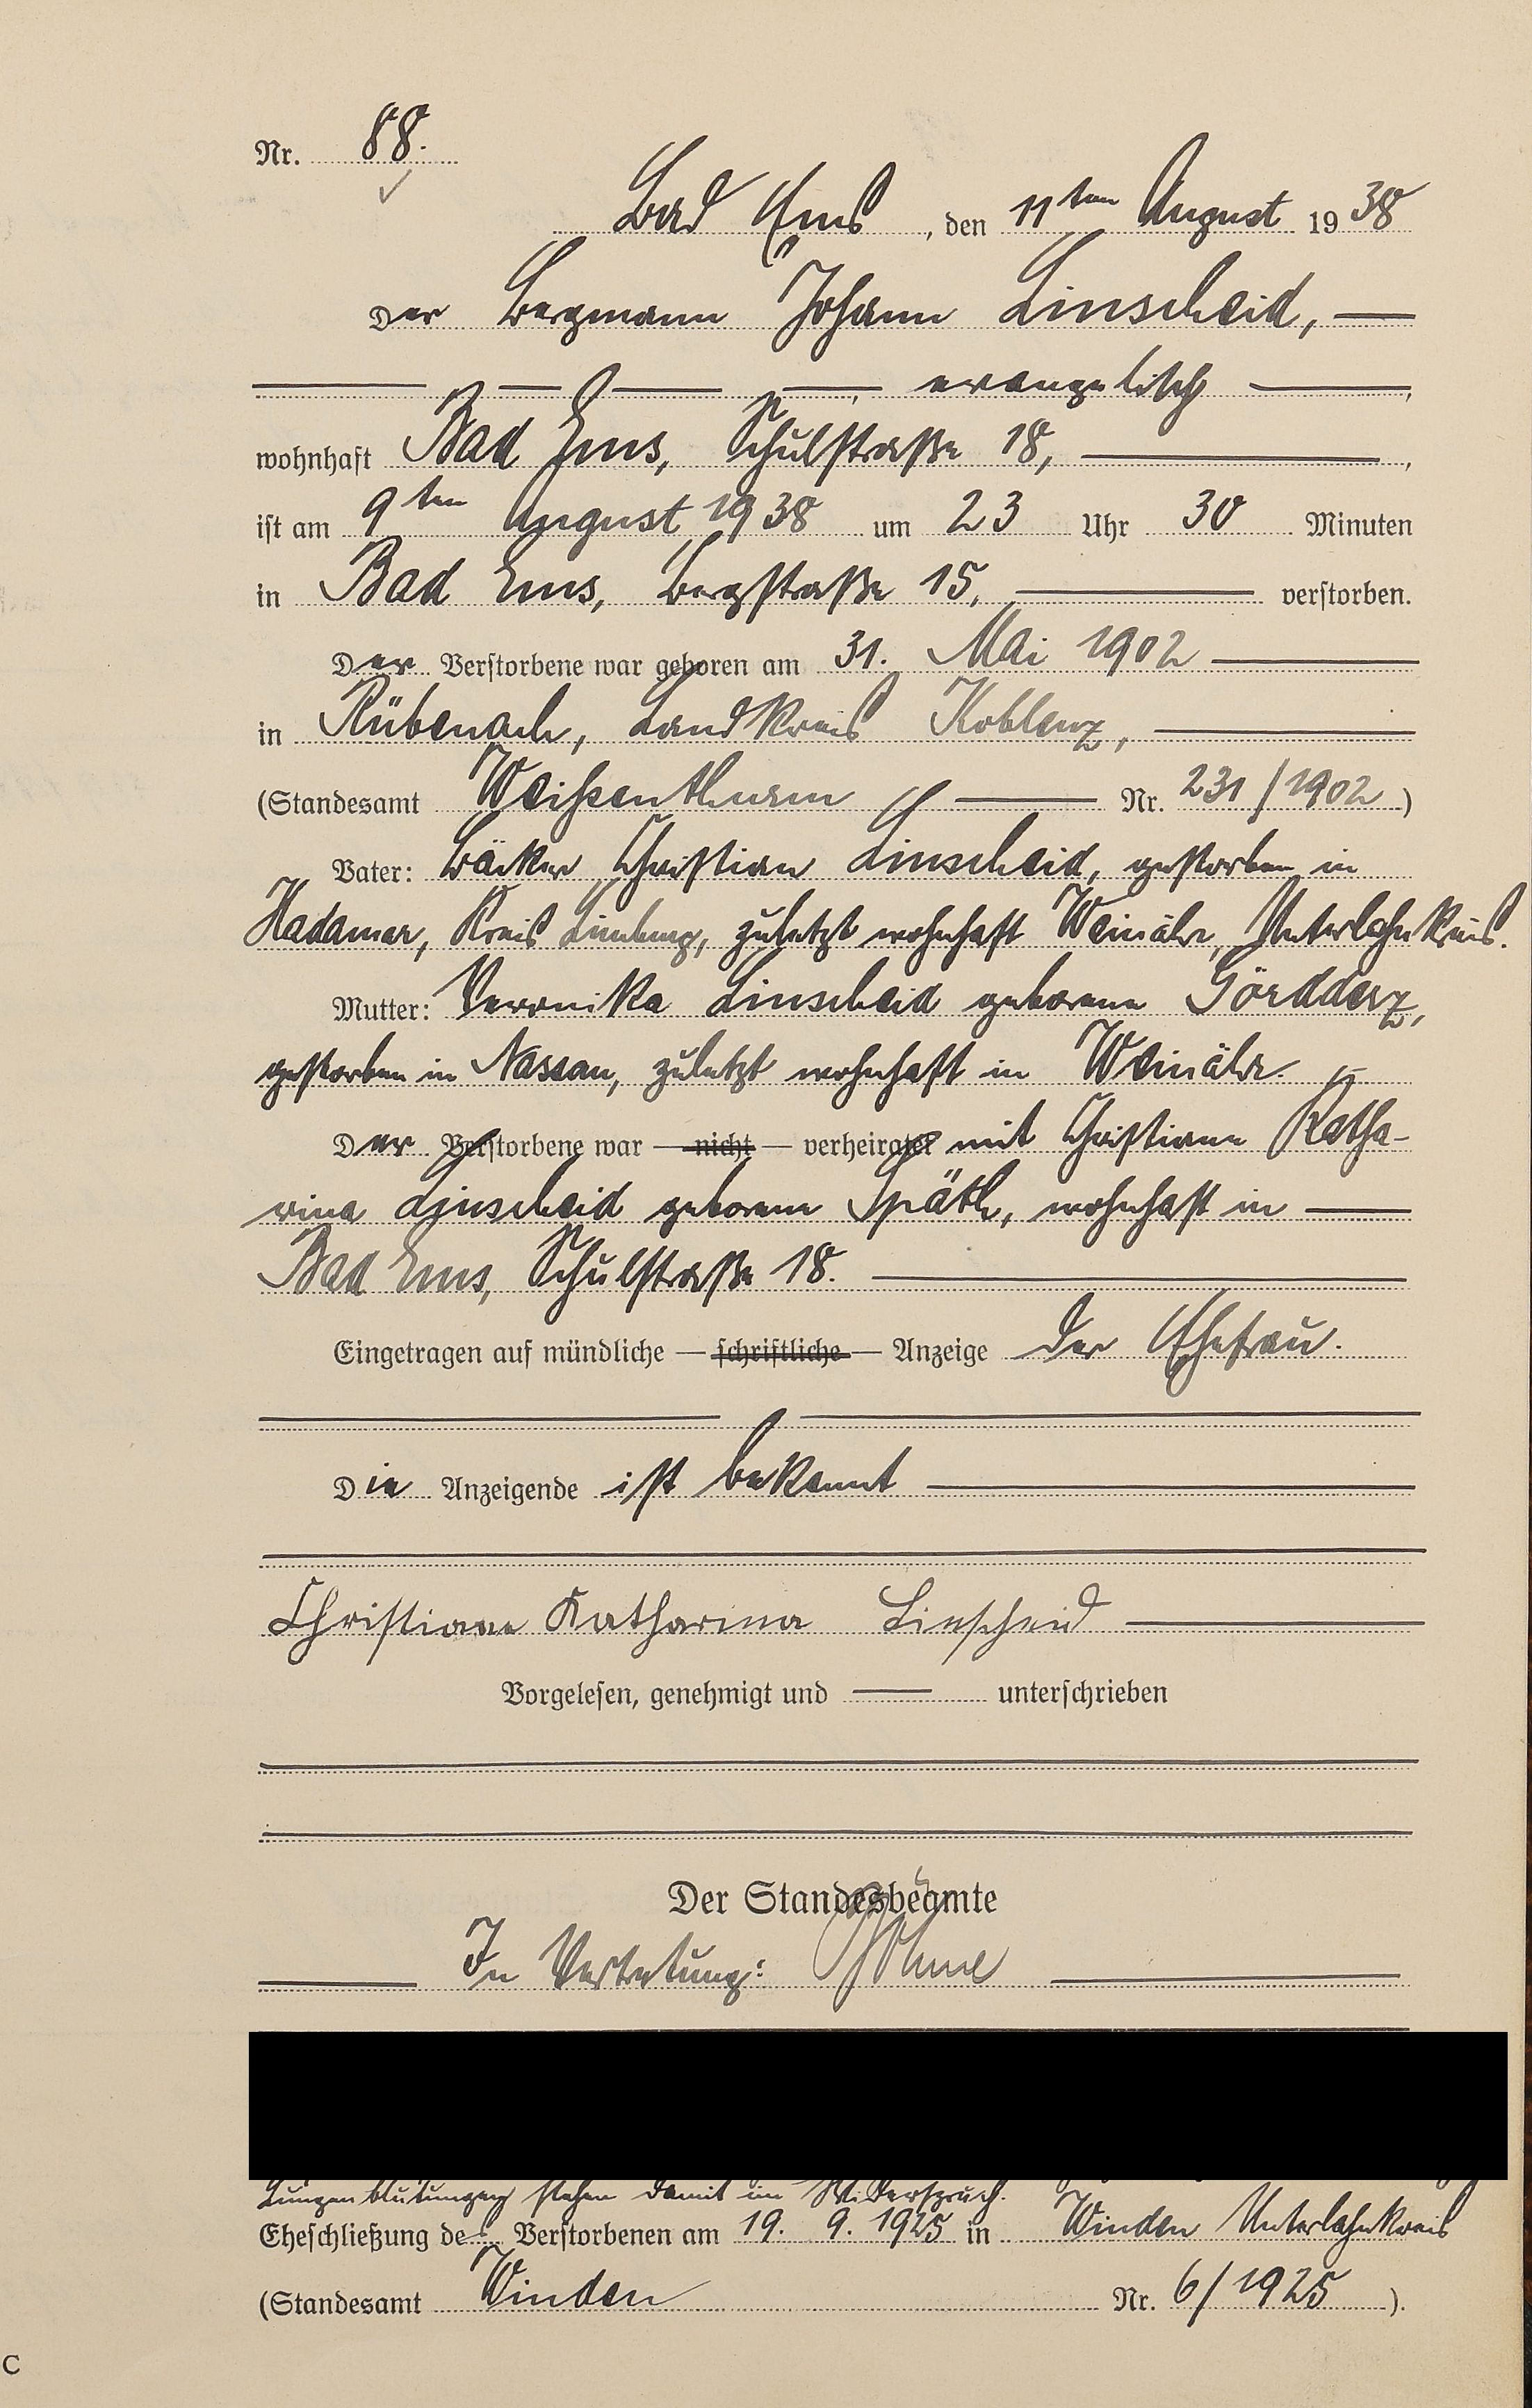 Nr. 88.
Bad Ems, den 11ten August 1938
Der Bergmann Johann Linscheid,
evangelisch
wohnhaft Bad Ems, Schulstraße 18,
ist am 9ten August 1938 um 23 Uhr 30 Minuten
in Bad Ems, Bergstraße 15, verstorben.
Der Verstorbene war geboren am 31. Mai 1902
in Rübenach, Landkreis Koblenz,
(Standesamt Weißenthurm Nr. 231/1902)
Vater: Bäcker Christian Linscheid, gestorben in
Hadamar, Kreis Limburg, zuletzt wohnhaft Weinähr, Unterlahnkreis.
Mutter: Veronika Linscheid geborene Gördderz,
gestorben in Nassau, zuletzt wohnhaft in Weinähr.
Der Verstorbene war — nicht — verheiratet mit Christiane Katha-
rina Linscheid geborene Späth, wohnhaft in
Bad Ems, Schulstraße 18.
Eingetragen auf mündliche — schriftliche — Anzeige der Ehefrau.
Die Anzeigende ist bekannt
Christiane Katharina Linscheid
Vorgelesen, genehmigt und unterschrieben
Der Standesbeamte
In Vertretung:
Lungenblutungen stehen damit im Widerspruch.
Eheschließung des Verstorbenen am 19. 9. 1925 in Winden Unterlahnkreis
(Standesamt Winden Nr. 6/1925).
C